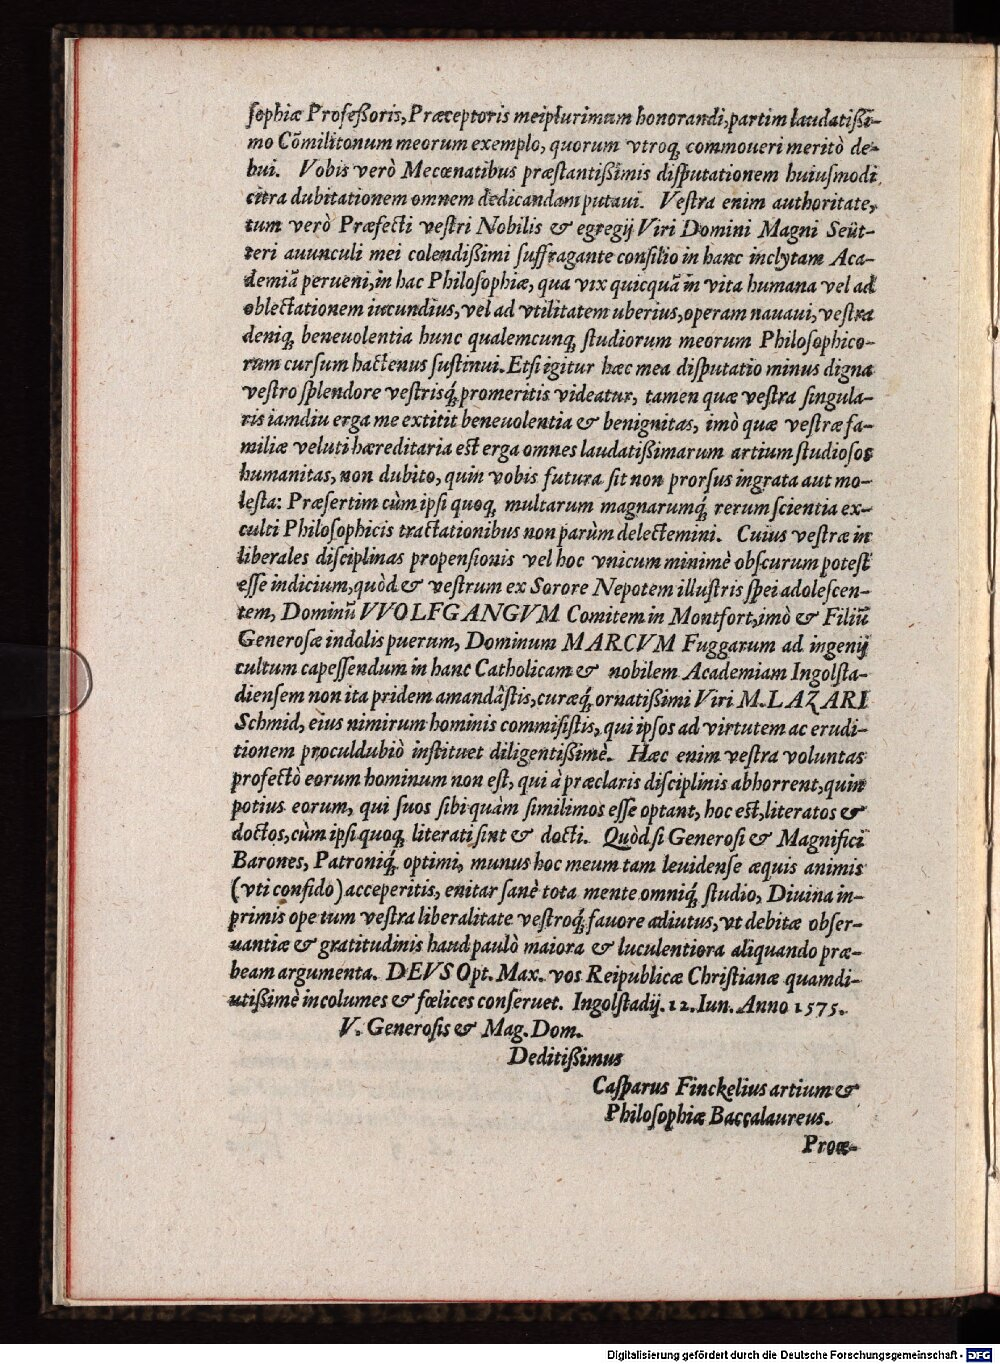 sophiæ Profeßoris, Præceptoris mei plurimum honorandi, partim laudatißi-
mo Cõmilitonum meorum exemplo, quorum vtroq; commoueri meritò de-
bui. Vobis verò Mecœnatibus præstantißimis disputationem huiusmodi
citra dubitationem omnem dedicandam putaui. Vestra enim authoritate,
tum verò Præfecti vestri Nobilis & egregij Viri Domini Magni Seüt-
teri auunculi mei colendißimi suffragante consilio in hanc inclytam Aca-
demiã perueni, in hac Philosophiæ, qua vix quicquã in vita humana vel ad
oblectationem iucundius, vel ad vtilitatem uberius, operam nauaui, vestra
deniq; beneuolentia hunc qualemcunq; studiorum meorum Philosophico-
rum cursum hactenus sustinui. Etsi igitur hæc mea disputatio minus digna
vestro splendore vestrisq́; promeritis videatur, tamen quæ vestra singula-
ris iamdiu erga me extitit beneuolentia & benignitas, imò quæ vestræ fa-
miliæ veluti hæreditaria est erga omnes laudatißimarum artium studiosos
humanitas, non dubito, quin vobis futura sit non prorsus ingrata aut mo-
lesta: Præsertim cùm ipsi quoq; multarum magnarumq́; rerum scientia ex-
culti Philosophicis tractationibus non parùm delectemini. Cuius vestræ in
liberales disciplinas propensionis vel hoc vnicum minimè obscurum potest
esse indicium, quòd & vestrum ex Sorore Nepotem illustris spei adolescen-
tem, Dominũ VVOLFGANGVM Comitem in Montfort, imò & Filiũ
Generosæ indolis puerum, Dominum MARCVM Fuggarum ad ingenij
cultum capessendum in hanc Catholicam & nobilem Academiam Ingolsta-
diensem non ita pridem amandâstis, curæq́; ornatißimi Viri M. LAZARI
Schmid, eius nimirum hominis commisistis, qui ipsos ad virtutem ac erudi-
tionem proculdubiò instituet diligentißimè. Hæc enim vestra voluntas
profectò eorum hominum non est, qui à præclaris disciplinis abhorrent, quin
potius eorum, qui suos sibi quàm similimos esse optant, hoc est, literatos &
doctos, cùm ipsi quoq; literati sint & docti. Quòd si Generosi & Magnifici
Barones, Patroniq́; optimi, munus hoc meum tam leuidense æquis animis
(vti confido) acceperitis, enitar sanè tota mente omniq́; studio, Diuina in-
primis ope tum vestra liberalitate vestroq́; fauore adiutus, vt debitæ obser-
uantiæ & gratitudinis haud paulò maiora & luculentiora aliquando præ-
beam argumenta. DEVS Opt. Max. vos Reipublicæ Christianæ quamdi-
utißimè incolumes & fœlices conseruet. Ingolstadij. 12. Iun. Anno 1575.
V. Generosis & Mag. Dom.
Deditißimus
Casparus Finckelius artium &
Philosophiæ Baccalaureus.
Proœ-
Digitalisierung gefördert durch die Deutsche Forschungsgemeinschaft - DFG